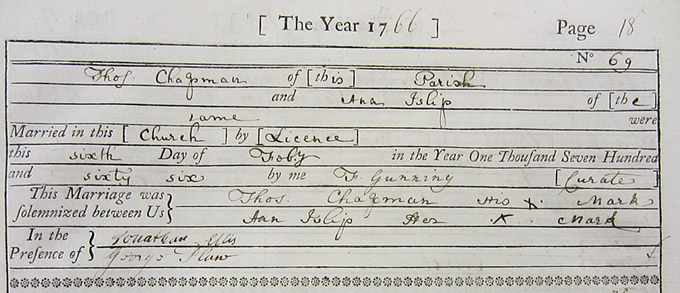 [ The Year 1766 ] Page 18
No 69
Thos. Chapman of [this] Parish
and Ann Islip of [the]
same were
Married in this [Church] by [Licence]
this sixth Day of Feby in the Year One Thousand Seven Hundred
and sixty six by me F. Gunning [Curate]
This Marriage was Thos. Chapman His X Mark
solemnized between Us Ann Islip Her X Mark
In the Jonathan Ellis
Presence of George